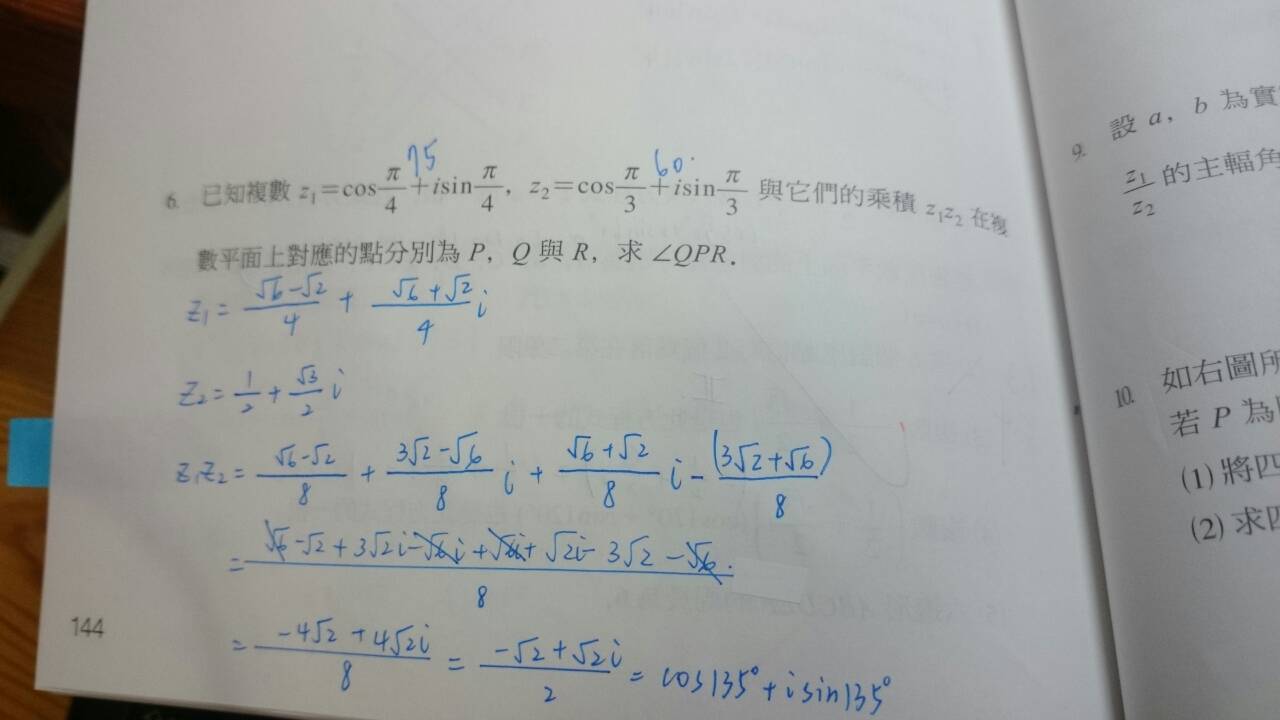 75 60
6. 已知複數 z₁=cos π/4 + i sin π/4, z₂=cos π/3 + i sin π/3 與它們的乘積 z₁z₂ 在複
數平面上對應的點分別為 P, Q 與 R, 求 ∠QPR.
z₁ = (√6-√2)/4 + (√6+√2)/4 i
z₂ = 1/2 + √3/2 i
z₁z₂ = (√6-√2)/8 + (3√2-√6)/8 i + (√6+√2)/8 i - (3√2+√6)/8
= (√6-√2+3√2i-√6i+√6i+√2i-3√2-√6)/8
= (-4√2+4√2i)/8 = (-√2+√2i)/2 = cos135°+isin135°
144
9. 設 a, b 為實
z₁/z₂ 的主輻角
10. 如右圖所
若 P 為
(1) 將四
(2) 求